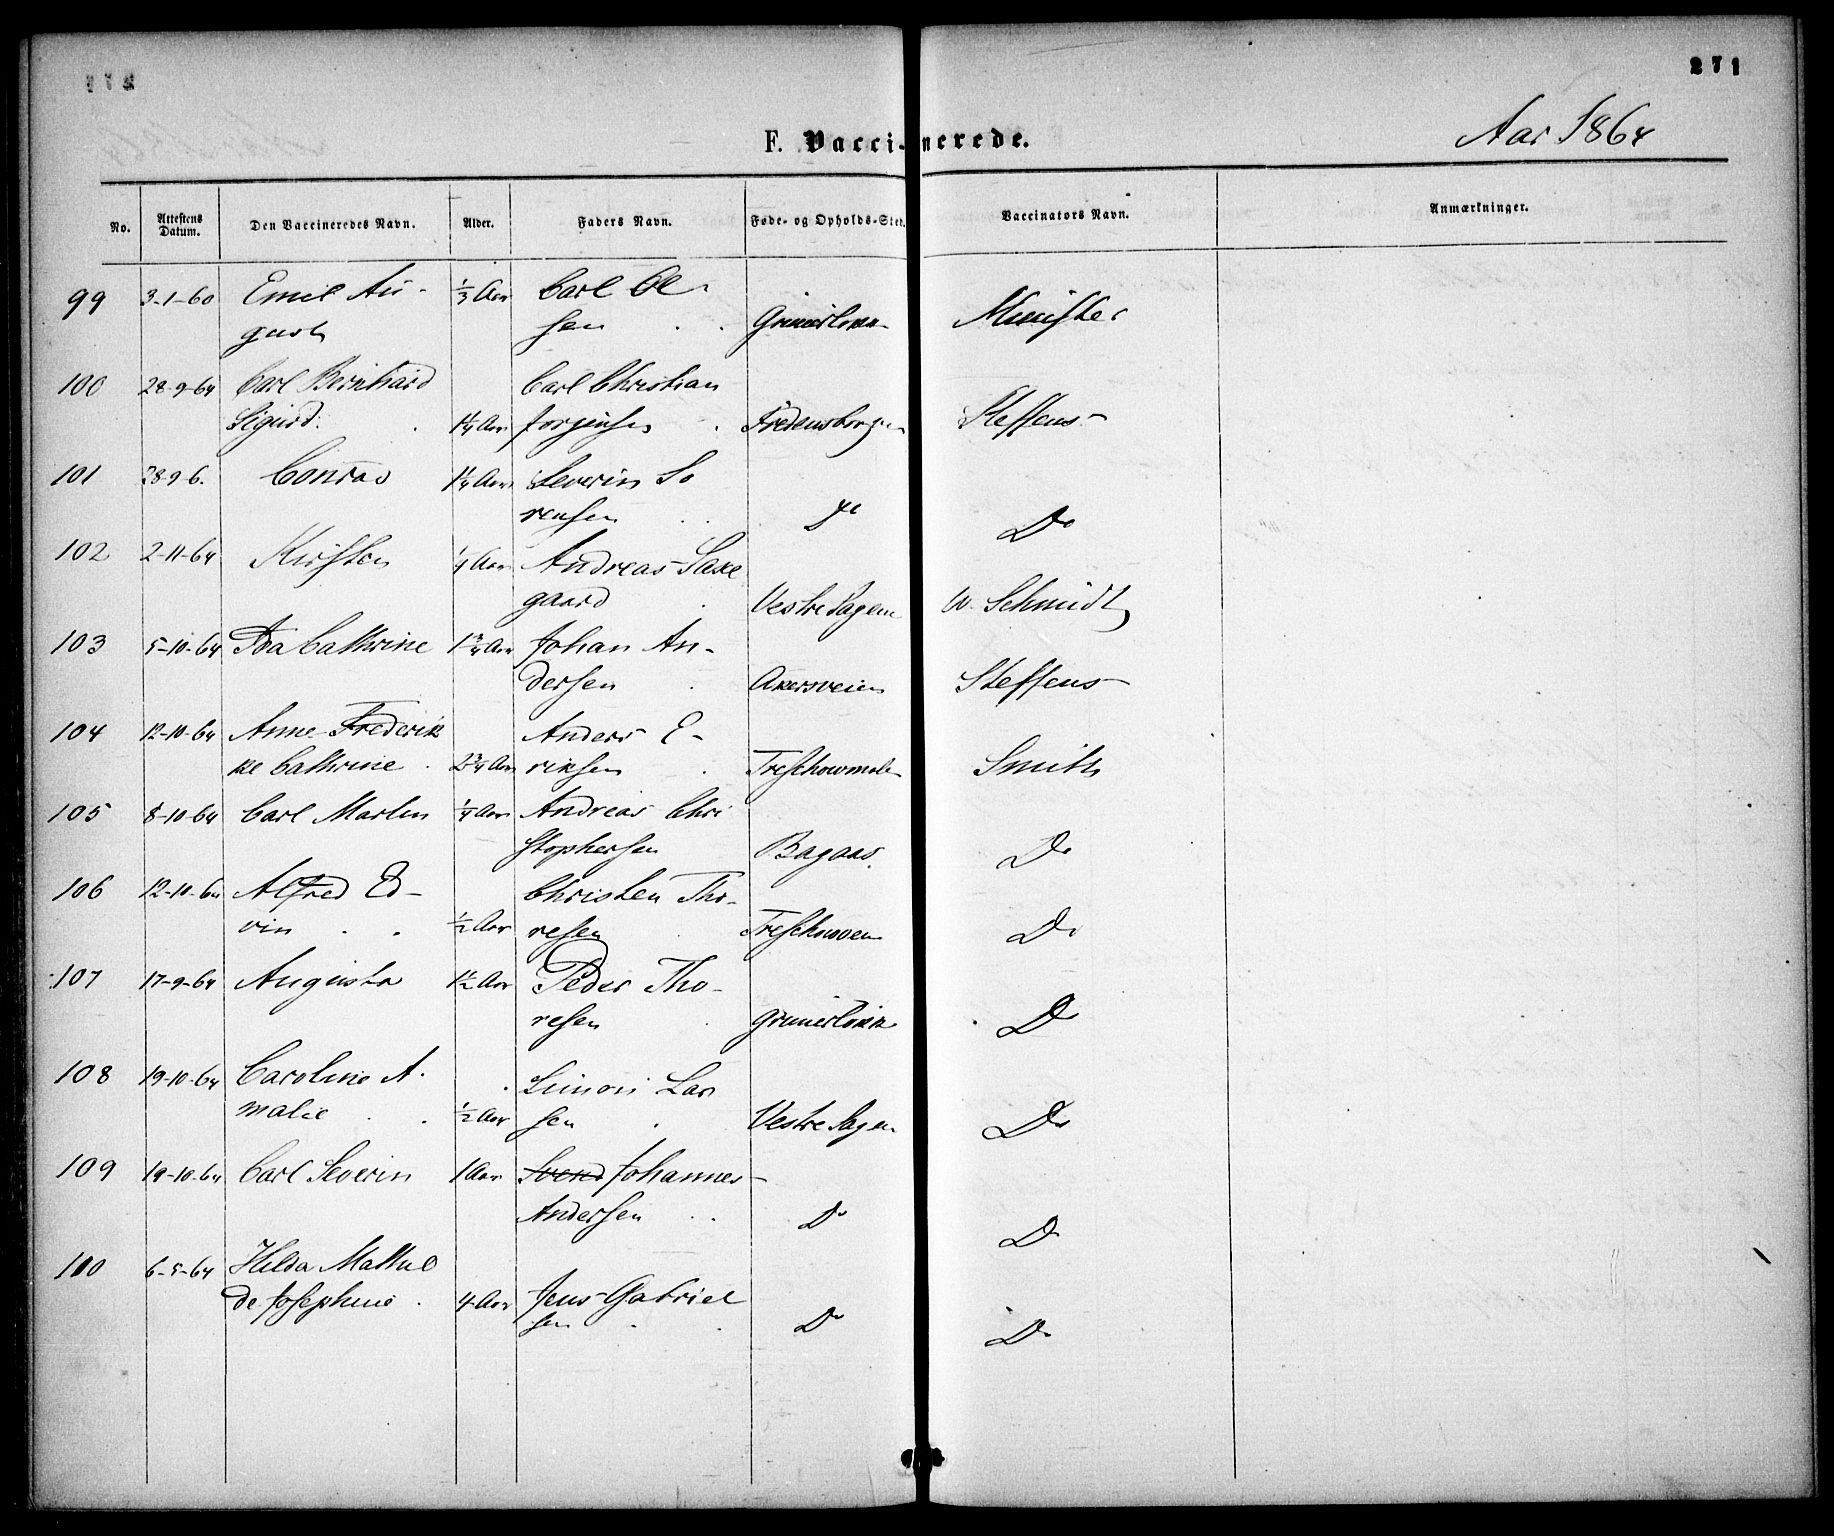 271
F. Vaccinerede.
Aar 1864
No. Attestens Datum. Den Vaccineredes Navn. Alder. Faders Navn. Føde- og Opholds-Sted. Vaccinators Navn. Anmærkninger.
99 3-1-60 Emil Au- 1/3 Aar Carl Ol-
gust sen Grünerløkk Münster
100 28-9-64 Carl Bernhard Carl Christian
Sigurd. 1 1/4 Aar Jørgensen Fredensborg Steffens
101 28-9-6. Conrad 1 1/4 Aar Severin Sø
rensen Do Do
102 2-11-64 Kirsten 1/4 Aar Andreas Saxe
gaard Vestre Sagene W. Schmidt
103 5-10-64 Ida Cathrine 1 3/4 Aar Johan An-
dersen Akersveien Steffens
104 12-10-64 Anne Frederik Anders E-
ke Cathrine 2 3/4 Aar riksen Treschowmøle Smith
105 8-10-64 Carl Martin 1/4 Aar Andreas Chri
stophersen Bagaas Do
106 12-10-64 Alfred Ed- Christen Tho-
vin 1/2 Aar resen Do
107 17-9-64 Augusta 1 1/2 Aar Peder Tho-
resen Grünerløkk Do
108 19-10-64 Caroline A- Simon Lar
malie 1/2 Aar sen Vestre Sagen Do
109 19-10-64 Carl Severin 1 Aar Svend Johannes
Andersen Do Do
110 6-5-64 Hilda Mathil
de Josephine 4 Aar Jens Gabriel
sen Do Do